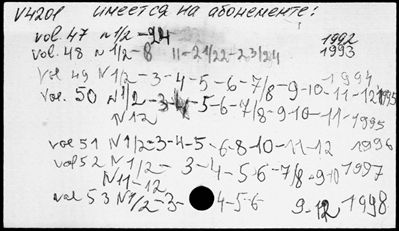 V4201 имеется на абонементе:
vol. 47 N 1/2-24 1992
vol. 48 N 1/2-8 11-21/22-23/24 1993
vol 49 N 1/2-3-4-5-6-7/8-9-10-11-12 1994
vol. 50 N 1/2-3-4-5-6-7/8-9-10-11- 1995
N12 1995
vol 51 N 1/2-3-4-5-6-8-10-11-12 1996
vol 52 N 1/2- 3-4-5-6-7/8-9-10 1997
N11-12
vol 53 N 1/2-3- 4-5-6 9-12 1998